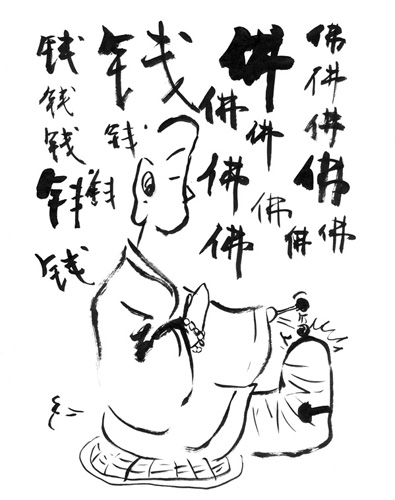 钱 钱 佛 佛
钱 佛 佛
钱 钱 佛 佛
钱 钱 佛 佛
佛
钱 佛 佛 佛